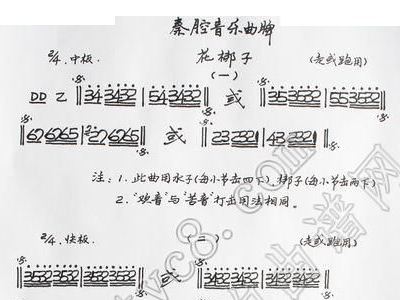 秦腔音乐曲牌
2/4 中板. 花梆子 (走或跑用)
(一)
DD 乙 ‖: 34 3432 | 54 3432 :‖ 或 ‖: 35 3532 | 55 3532 :‖
‖: 62 6265 | 22 6265 :‖ 或 ‖: 23 2321 | 43 2321 :‖
注: 1. 此曲用水子(每小节击四下), 梆子(每小节击两下)
2. "欢音"与"苦音"打击用法相同。
2/4 快板. (二) (走或跑用)
‖: 3532 3532 | 3532 3532 :‖ 或 ‖: 3432 3432 | 3432 3432 :‖